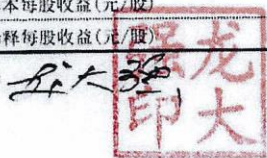 本每股收益(元/股)
释每股收益(元/股)
龙大强
龙大
强印